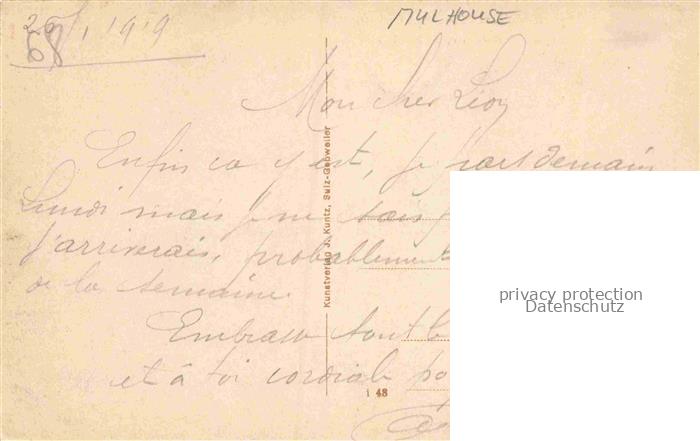 1919
68
MULHOUSE
Mon cher Léon
Enfin ca y est, je pars demain
Lundi mais je ne sais
j'arriverais, probablement
de la semaine.
Embrasse tout le
et à toi cordiale
Kunstverlag J. Kuntz, Sulz-Gebweiler
i 48
privacy protection
Datenschutz